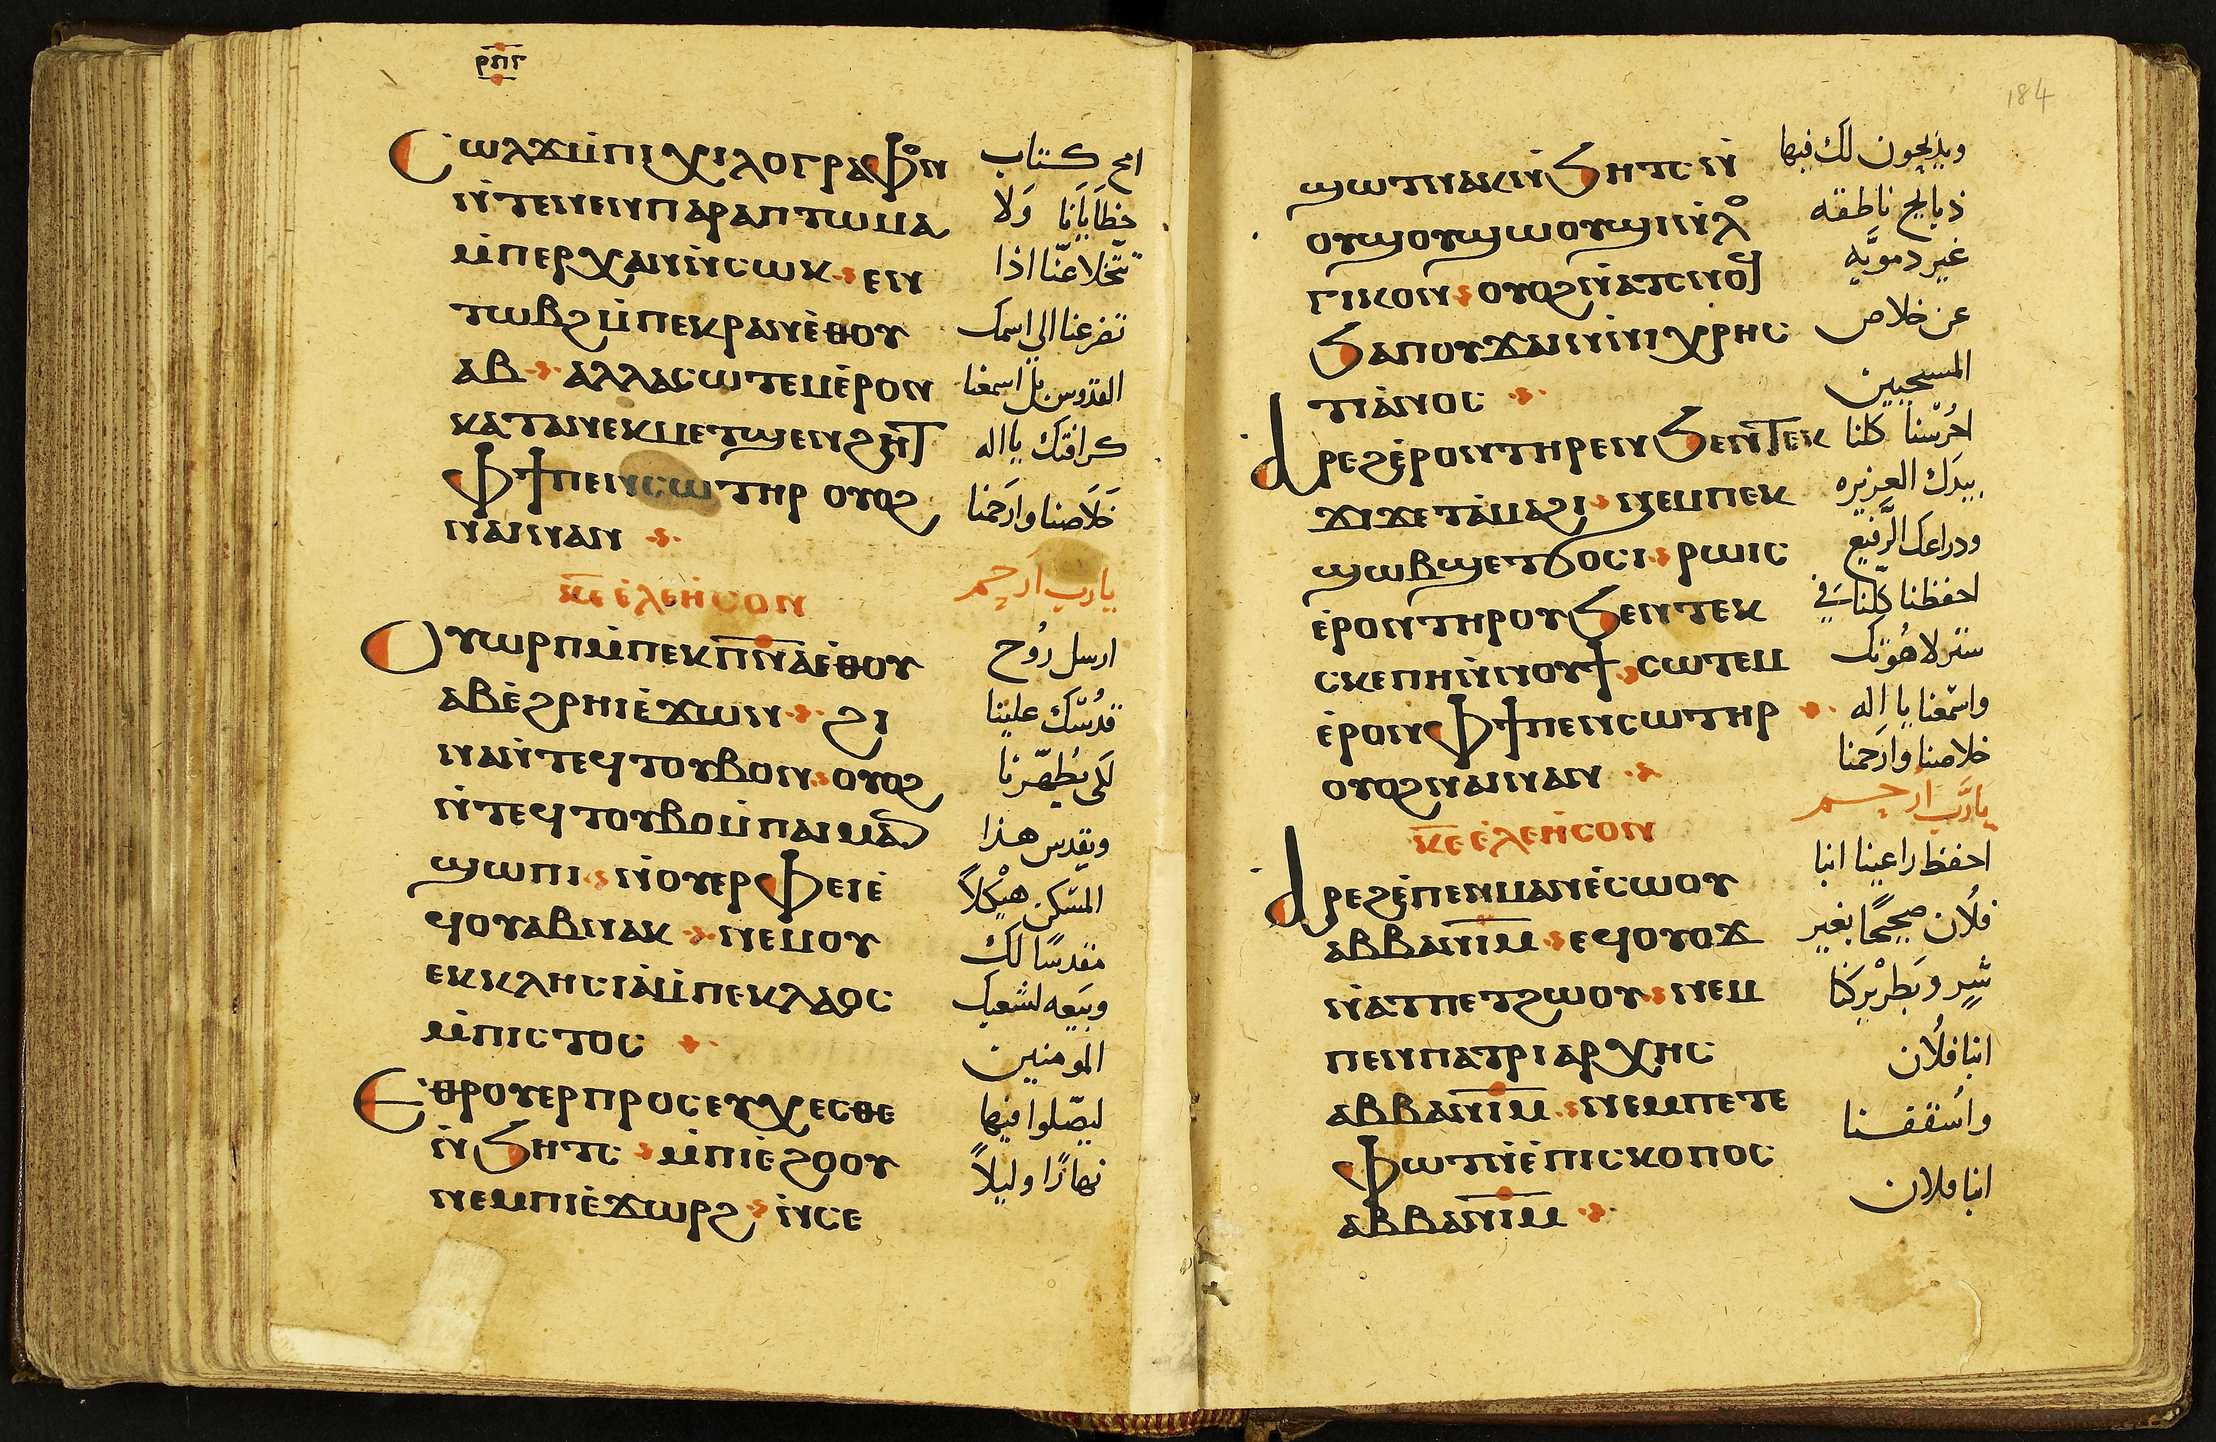 ⲣⲡⲅ
Ⲥⲱⲗϫ ⲙ̇ⲡⲓⲭⲓⲗⲟⲅⲣⲁⲫⲟⲛ
ⲛ̇ⲧⲉⲛⲉⲛⲡⲁⲣⲁⲡⲧⲱⲙⲁ
ⲙ̇ⲡⲉⲣⲭⲁⲛ ⲛ̇ⲥⲱⲕ ⲉⲛ
ⲧⲱⲃϩ ⲙ̇ⲡⲉⲕⲣⲁⲛ ⲉ̇ⲑⲟⲩ
ⲁⲃ ⲁⲗⲗⲁ ⲥⲱⲧⲉⲙ ⲉ̇ⲣⲟⲛ
ⲕⲁⲧⲁ ⲛⲉⲕⲙⲉⲧϣⲉⲛϩⲏⲧ
ⲫϯ ⲡⲉⲛⲥⲱⲧⲏⲣ ⲟⲩⲟϩ
ⲛⲁⲓ ⲛⲁⲛ
ⲕ̅ⲉ̅ ⲉ̇ⲗⲉⲏ̇ⲥⲟⲛ
Ⲟⲩⲱⲣⲡ ⲙ̇ⲡⲉⲕⲡ̅ⲛ̅ⲁ̅ ⲉ̇ⲑⲟⲩ
ⲁⲃ ⲉ̇ϩⲣⲏⲓ ⲉ̇ϫⲱⲛ ϩⲓ
ⲛⲁ ⲛ̇ⲧⲉϥⲧⲟⲩⲃⲟⲛ ⲟⲩⲟϩ
ⲛ̇ⲧⲉϥⲧⲟⲩⲃⲟ ⲙ̇ⲡⲁⲓⲙⲁⲛ
ϣⲱⲡⲓ ⲛ̇ⲟⲩⲉⲣⲫⲉⲓ ⲉ̇
ϥⲟⲩⲁⲃ ⲛⲁⲕ ⲛⲉⲙ ⲟⲩ
ⲉⲕⲕⲗⲏⲥⲓⲁ̇ ⲙ̇ⲡⲉⲕⲗⲁⲟⲥ
ⲙ̇ⲡⲓⲥⲧⲟⲥ
Ⲉⲑⲣⲟⲩⲉⲣⲡⲣⲟⲥⲉⲩⲭⲉⲥⲑⲉ
ⲛ̇ϧⲏⲧⲥ ⲙ̇ⲡⲓⲉ̇ϩⲟⲟⲩ
ⲛⲉⲙ ⲡⲓⲉ̇ϫⲱⲣϩ ⲛ̇ⲥⲉ
امح كتاب
خطَايَانا وَلا
تتخلا عنّا اذا
تضرعنا الى اسمك
القدوس بل اسمعنا
كرافتك يا اله
خَلَاصنا وارحمنا
يا رب ارحم
ارسل رُوح
قدُسّك علينا
لكى يُطهّرنا
ويقدس هذا
المسكن هيكلاً
مقدسًا لك
وبيعه لشعبك
المومنين
ليصّلوا فيها
نهارًا وليلاً
184
ϣⲱⲧ ⲛⲁⲕ ⲛ̇ϧⲏⲧⲥ ⲛ̇
ⲟⲩϣⲟⲩϣⲱⲟⲩϣⲓ ⲛ̇ⲗⲟ
ⲅⲓⲕⲟⲛ ⲟⲩⲟϩ ⲛ̇ⲁⲧⲥⲛⲟϥ
ϧⲁ ⲡⲟⲩϫⲁⲓ ⲛ̇ⲛⲓⲭⲣⲏⲥ
ⲧⲓⲁ̇ⲛⲟⲥ
Ⲁⲣⲉϩ ⲉ̇ⲣⲟⲛ ⲧⲏⲣⲉⲛ ϧⲉⲛ ⲧⲉⲕ
ϫⲓϫ ⲉⲧⲁ̇ⲙⲁϩⲓ ⲛⲉⲙ ⲡⲉⲕ
ϣⲱⲃϣ ⲉⲧϭⲟⲥⲓ ⲣⲱⲓⲥ
ⲉ̇ⲣⲟⲛ ⲧⲏⲣⲟⲩ ϧⲉⲛ ⲧⲉⲕ
ⲥⲕⲉⲡⲏ ⲛ̇ⲛⲟⲩϯ ⲥⲱⲧⲉⲙ
ⲉ̇ⲣⲟⲛ ⲫϯ ⲡⲉⲛⲥⲱⲧⲏⲣ
ⲟⲩⲟϩ ⲛⲁⲓ ⲛⲁⲛ
ⲕ̅ⲉ̅ ⲉ̇ⲗⲉⲏ̇ⲥⲟⲛ
Ⲁⲣⲉϩ ⲉ̇ⲡⲉⲛⲙⲁⲛⲉ̇ⲥⲱⲟⲩ
ⲁⲃⲃⲁ ⲛ̅ⲓ̅ⲙ̅ ⲉϥⲟⲩⲟϫ
ⲛ̇ⲁⲧⲡⲉⲧϩⲱⲟⲩ ⲛⲉⲙ
ⲡⲉⲛⲡⲁⲧⲣⲓⲁⲣⲭⲏⲥ
ⲁⲃⲃⲁ ⲛ̅ⲓ̅ⲙ̅ ⲛⲉⲙ ⲡⲉⲧⲉ
ⲫⲱⲛ ⲛ̇ⲉ̇ⲡⲓⲥⲕⲟⲡⲟⲥ
ⲁⲃⲃⲁ ⲛ̅ⲓ̅ⲙ̅
ويذبحون لك فيها
ذبايح ناطقه
غير دمويّه
عن خلاص
المسيحيين
احُرسّنا كلنا
بيدك العزيزه
ودراعك الرّفيع
احفظنا كلّنا في
ستر لاهُوتك
واسمعنا يا اله
خلاصنا وارحمنا
يا رَب ارحم
احفظ راعينا انبا
فلُان صحيحًا بغير
شرٍ وبَطرْيركنا
انبا فلُان
واسُقفنا
انبا فلان